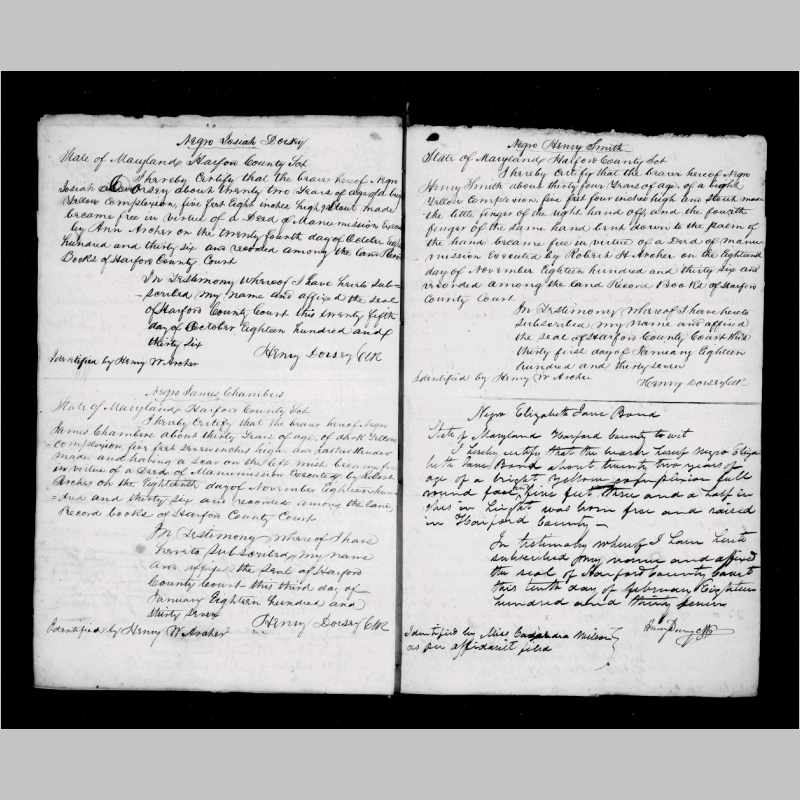 Negro Josiah Dorsey
State of Maryland Harford County Sct
I hereby Certify that the bearer hereof Negro
Josiah Dorsey about twenty two years of age of a
Yellow Complexion, five feet eight inches high Stout made
became free in virtue of a Deed of Manumission
by Ann Archer on the twenty fourth day of October
hundred and thirty six and recorded among the land
Books of Harford County Court
In Testimony whereof I have hereto sub-
-scribed my name and affixed the seal
of Harford County Court this twenty fifth
day of October Eighteen hundred and
thirty Six
Henry Dorsey Clk
Identified by Henry W Archer
Negro James Chambers
State of Maryland Harford County Sct
I hereby Certify that the bearer hereof Negro
James Chambers about thirty Years of age, of dark Yellow
Complexion, five feet seven inches high and rather slender
made and having a Scar on the left became free
in virtue of a Deed of Manumission executed by Robert H
Archer on the Eighteenth day of November Eighteen hun-
=dred and thirty six and recorded among the Land
Record books of Harford County Court
In Testimony whereof I have
hereto Subscribed my name
and affixed the Seal of Harford
County Court this third day of
January Eighteen hundred and
thirty Seven
Henry Dorsey Clk
Identified by Henry W Archer
Negro Henry Smith
State of Maryland Harford County Sct
I hereby Certify that the bearer hereof Negro
Henry Smith about thirty four Years of age, of a light
Yellow Complexion, five feet four inches high and stout made
the little finger of the right hand off and the fourth
finger of the same hand bent down to the palm of
the hand became free in virtue of a Deed of manu
mission executed by Robert H Archer on the Eighteenth
day of November Eighteen hundred and thirty six and
recorded among the land Record Books of Harford
County Court
In Testimony whereof I have hereto
subscribed my name and affixed
the seal of Harford County Court this
thirty first day of January Eighteen
hundred and thirty seven
Identified by Henry W Archer
Henry Dorsey Clk
Negro Elizabeth Jane Bond
State of Maryland Harford County to wit
I hereby certify that the bearer hereof Negro Eliza
beth Jane Bond about twenty two years of
age of a bright Yellow complexion full
round face, five feet three and a half in
ches in height was born free and raised
in Harford County —
In testimony whereof I have hereto
subscribed my name and affixed
the seal of Harford County Court
this tenth day of February Eighteen
hundred and thirty seven
Henry Dorsey Clk
Identified by Miss Cassandra Wilson
as per affidavit filed